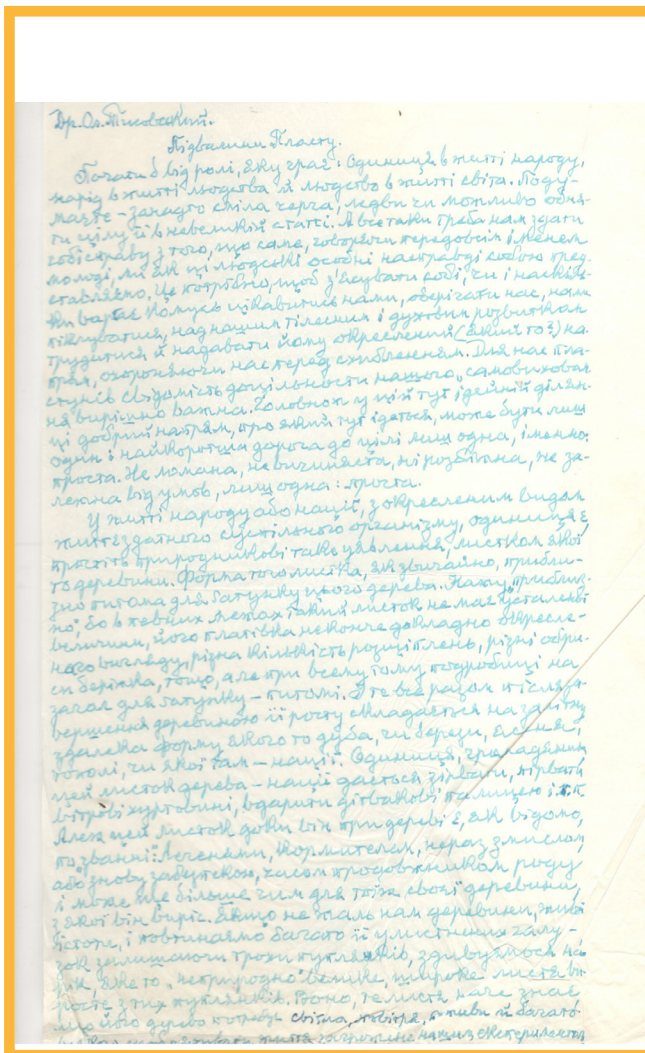 Др. Ол. Тисовський.
Підвалини Пласту.
Почати б від ролі, яку грає: одиниця в житті народу,
нарід в житті людства й людство в житті світа. Поду-
маєте – занадто сміла черга, ледви чи можливо обня-
ти цілу її в невеликій статті. А все таки треба нам здати
собі справу з того, що саме, говорючи передовсім іменем
молоді, ми як ці людські особні насправді собою пред-
ставляємо. Це потрібно, щоб з'ясувати собі, чи і наскіль-
ки варта комусь цікавитись нами, оберігати нас, нами
піклуватися, над нашим тілесним і духовим розвитком
трудитися й надавати йому окреслений (який то?) на-
прям, охороняючи нас перед схибленням. Для нас пла-
стунів свідомість доцільности нашого „самовихован
ня вирішно важна. Головнож у цій тут ідейній ділян-
ці добрий напрям, про який тут ідеться, може бути лиш
один і найкоротша дорога до цілі лиш одна, іменно:
проста. Не ломана, не вичиняста, ні розбіжна, не за-
лежна від умов, лиш одна: проста.
У житті народу або нації, з окресленим видом
життєздатного суспільного організму, одиниця є,
простіть природникові таке уявлення, листком якої
то деревини. Форма того листка, як звичайно, прибли-
зно питома для ґатунку цього дерева. Кажу „приблиз-
но", бо в певних межах такий листок не має усталеної
величини, його платівка неконче докладно окресле-
ного вигляду, різна кількість розщіплень, різні обри-
си бережка, тощо, але при всьому тому подробиці на
загал для ґатунку – питомі. І те все разом після за-
вершення деревиною її росту складається на замітну
здалека форму якого то дуба, чи берези, ясеня,
тополі, чи якої там – нації. Одиниця, громадянин,
цей листок дерева – нації дається зірвати, пірвати
вітрові хуртовині, вдарити дітвакові палицею і т.п.
Алеж цей листок доки він при дереві є, як відомо,
по званні: легенями, кормителем, нераз змислом,
або знову забутекою, часом продовжником роду
і може ще більше чим для тої своєї деревини,
з якої він виріс. Якщо не жаль нам деревини, живої
істоти, і повтинаємо багато її улистнених галу-
зок залишаючи трохи куплянків, здивуємося на-
вік, яке то „неприродно" велике, широке листя ви-
росте з тих куплянків. Воно, те листя наче знає
що його дуже потребує світла, повітря, поживи й багато